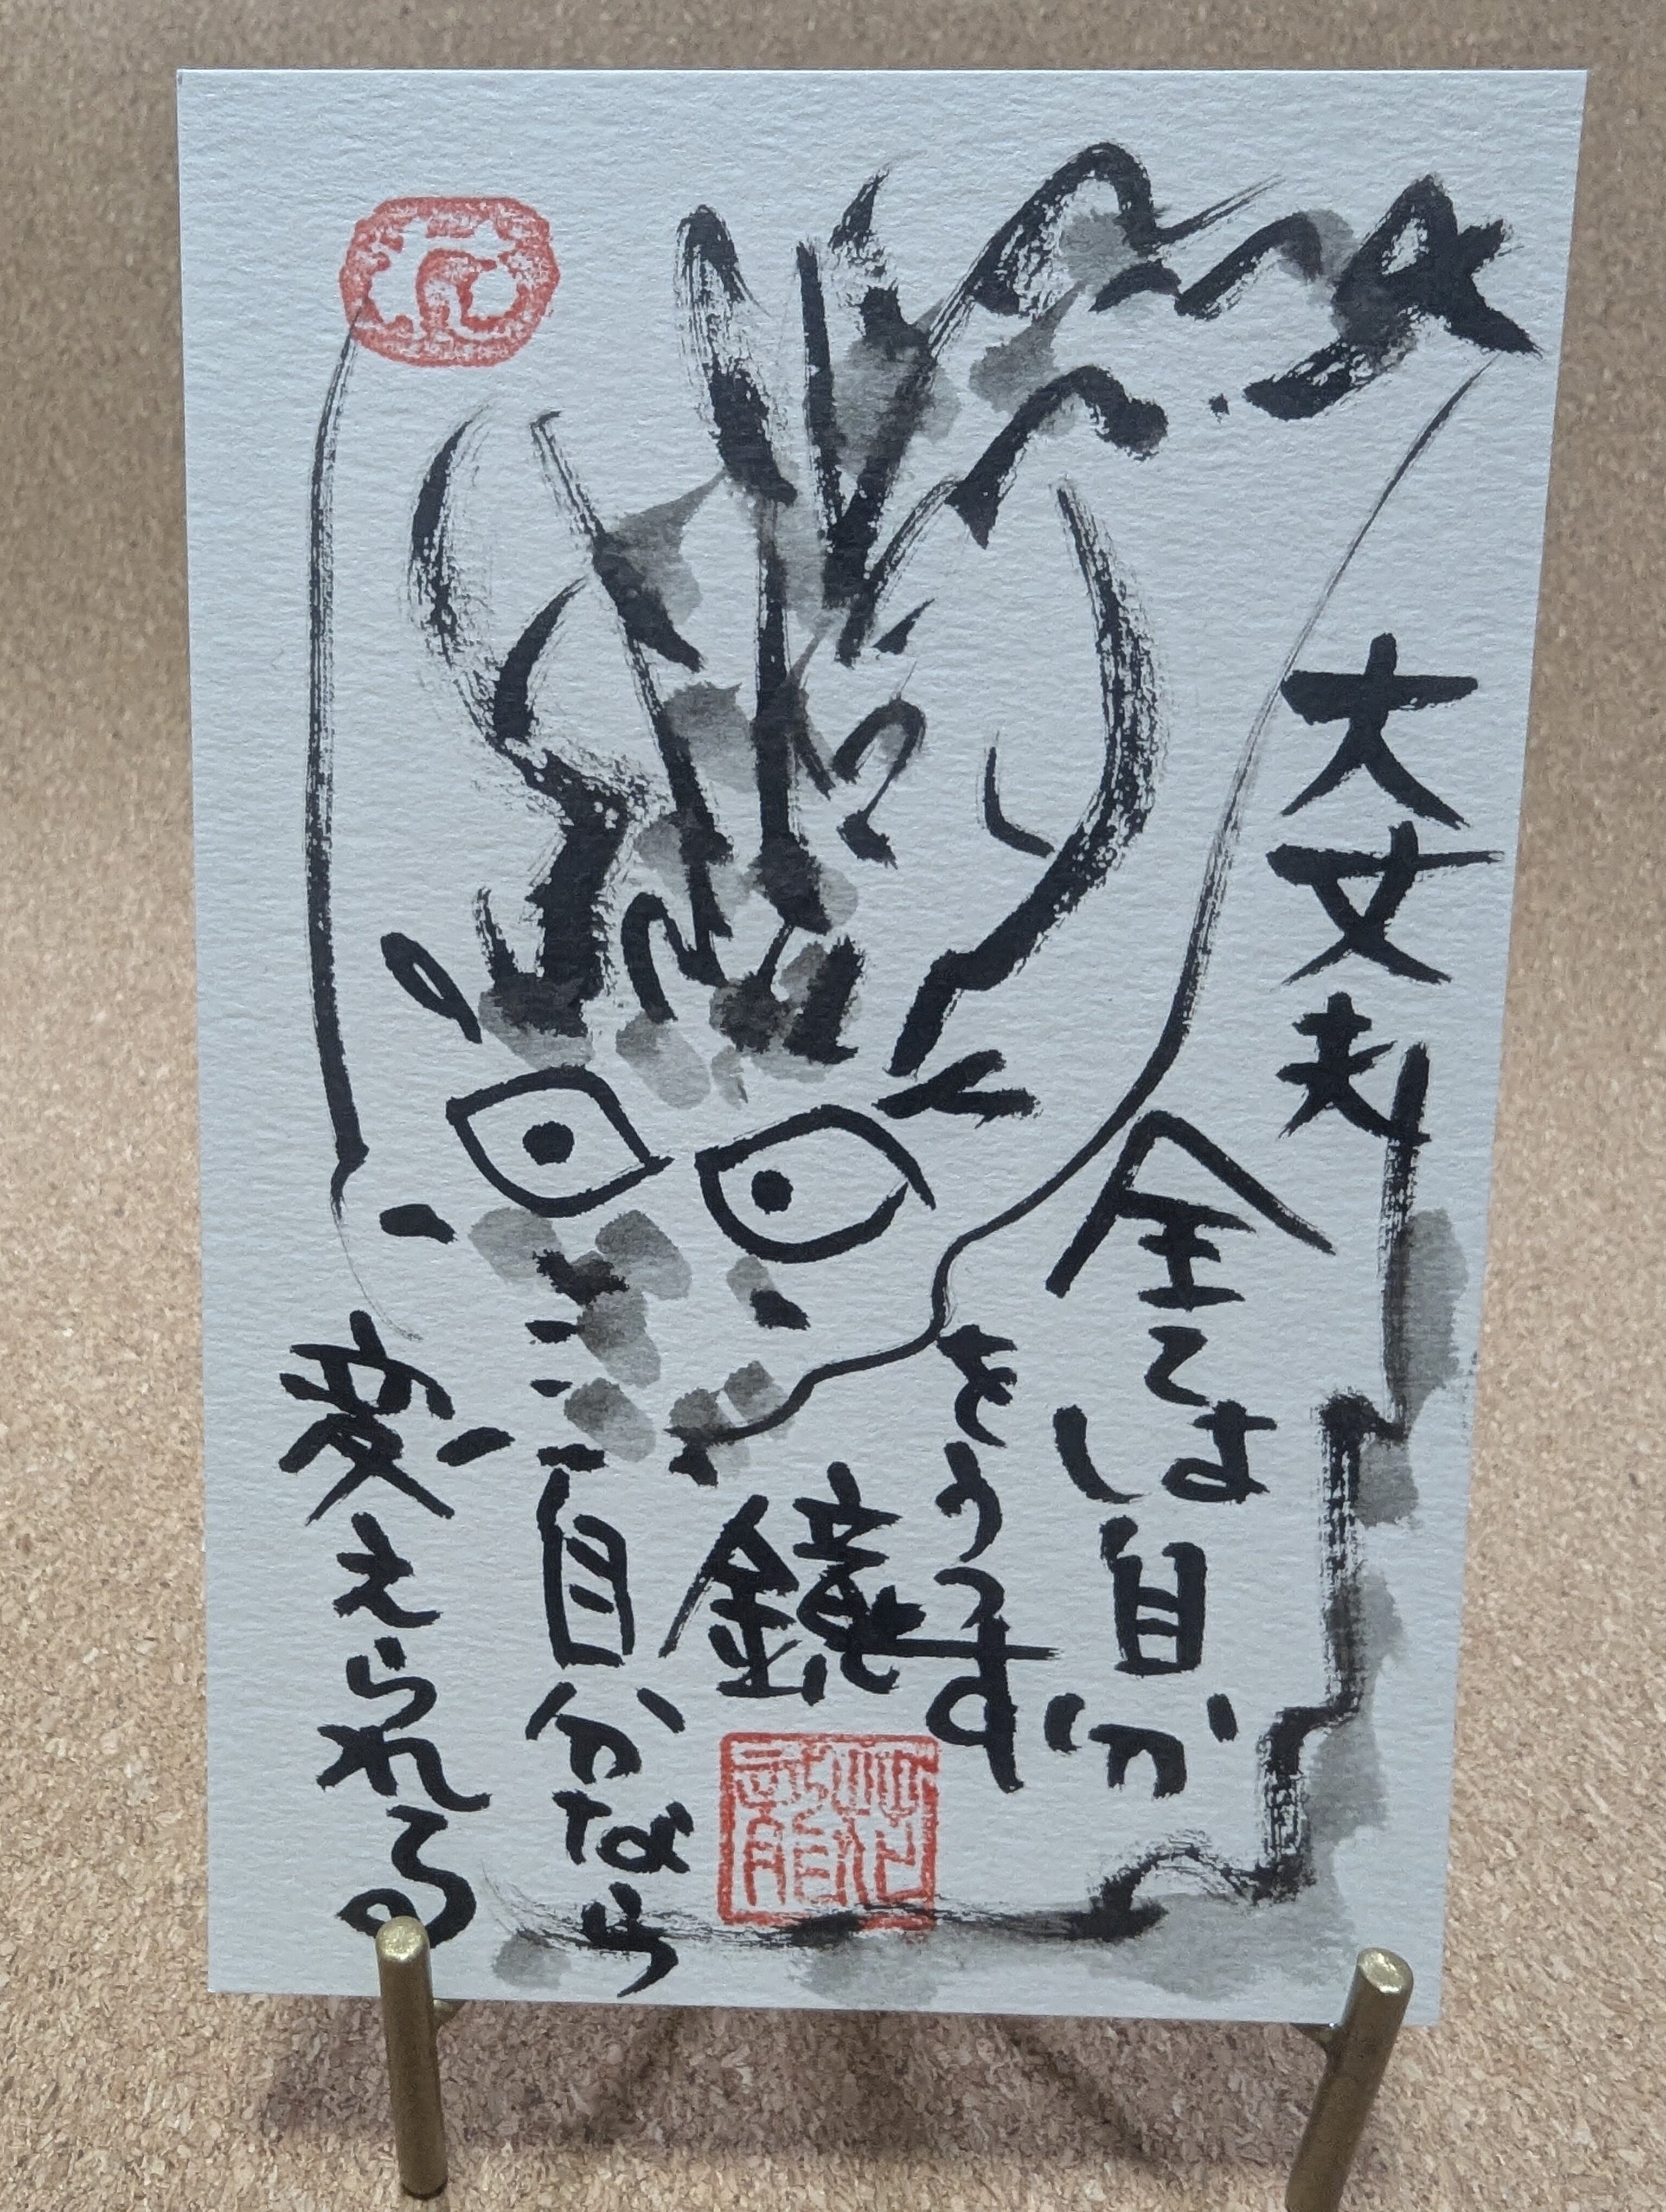 大丈夫
全ては自分
をうつす
鏡
自分なら
変えられる